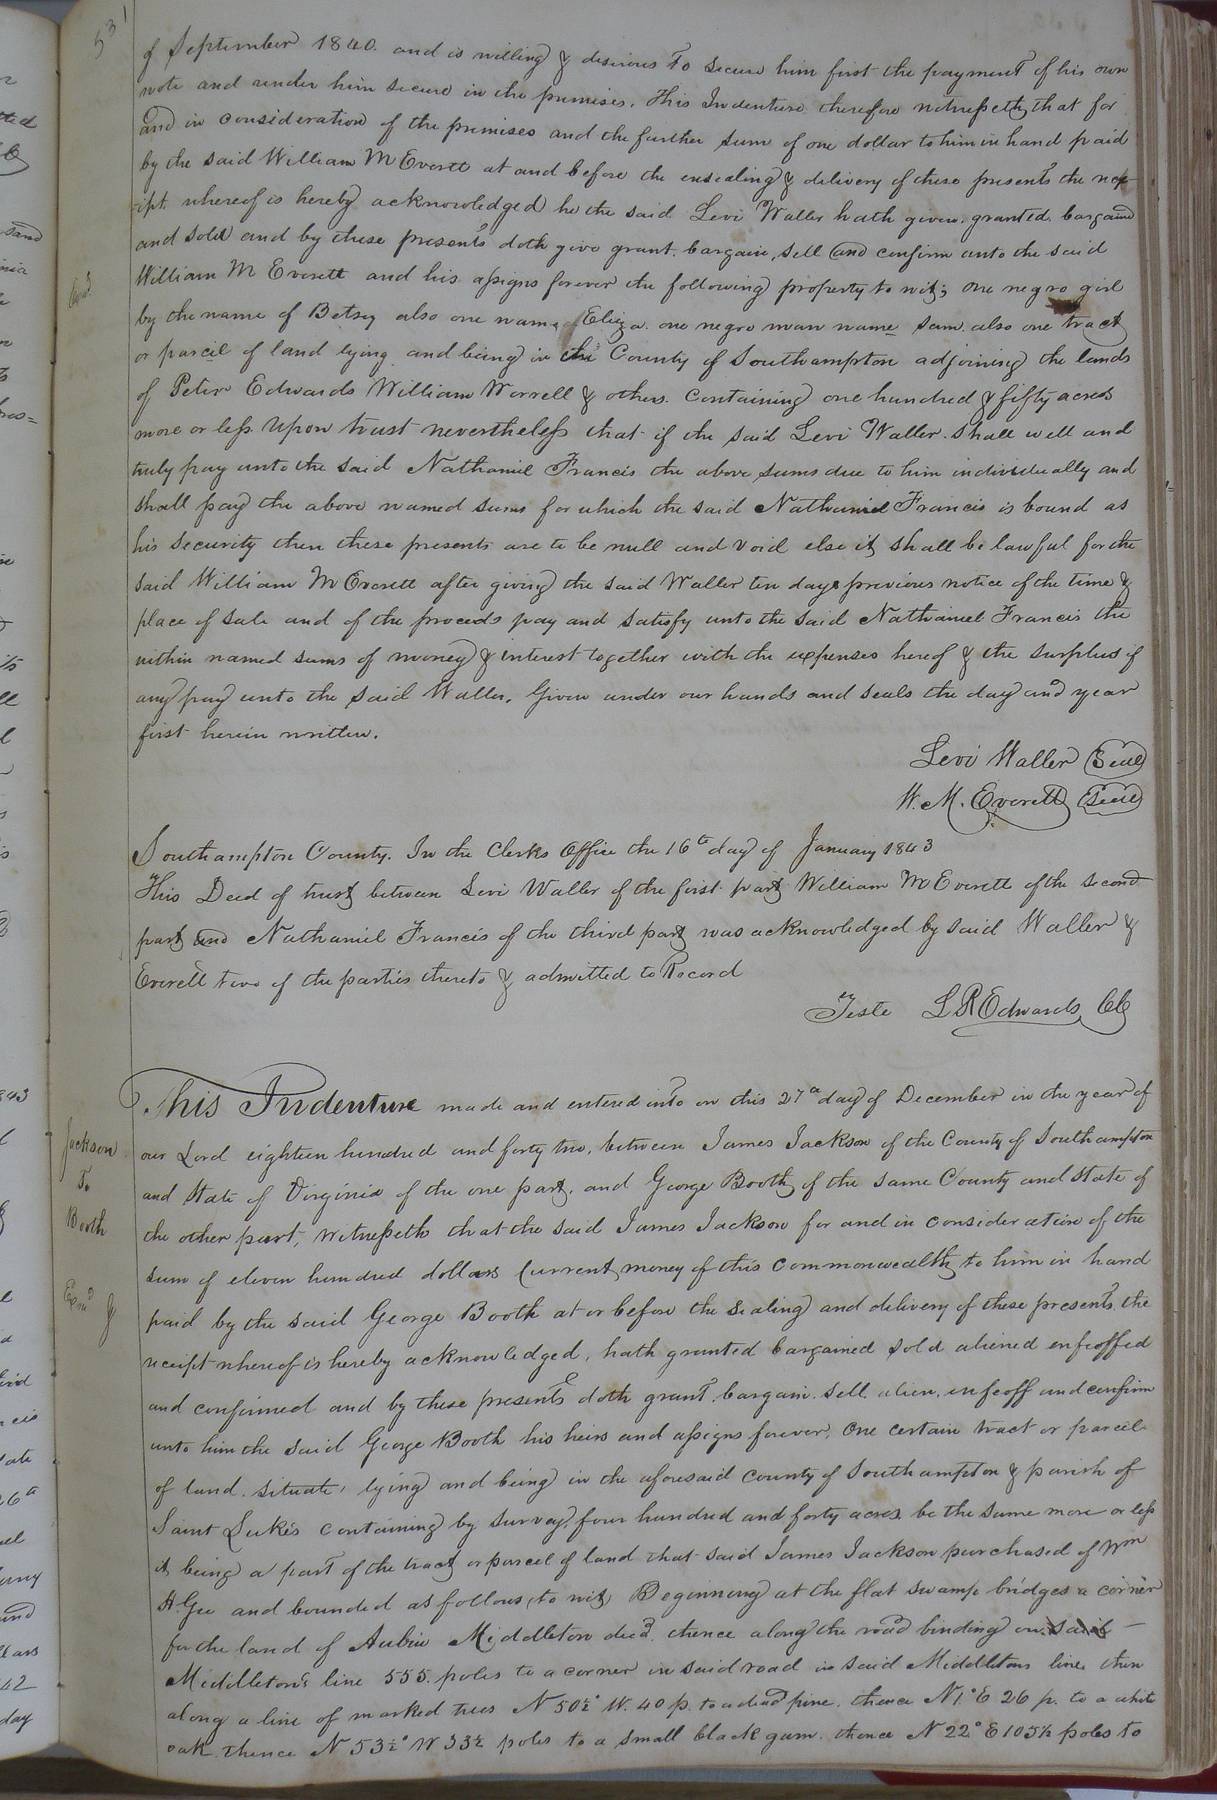 531
of September 1840. and is willing & desirous to secure him first the payment of his own
note and under him secure in the premises. This Indenture therefore witnesseth that for
and in consideration of the premises and the further sum of one dollar to him in hand paid
by the said William M Everett at and before the ensealing & delivery of these presents the rece-
ipt whereof is hereby acknowledged he the said Levi Waller hath given, granted bargained
and sold and by these presents doth give grant. bargain, sell and confirm unto the said
William M Everett and his assigns forever the following property to wit; one negro girl
by the name of Betsy also one name Eliza. one negro man name Sam. also one tract
or parcel of land lying and being in the County of Southampton adjoining the lands
of Peter Edwards William Worrell & others. Containing one hundred & fifty acres
more or less Upon trust nevertheless that if the said Levi Waller. shall well and
truly pay unto the said Nathaniel Francis the above sums due to him individually and
shall pay the above named sums for which the said Nathaniel Francis is bound as
his security then these presents are to be null and void else it shall be lawful for the
said William M Everett after giving the said Waller ten days previous notice of the time &
place of sale and of the proceeds pay and satisfy unto the said Nathaniel Francis the
within named sums of money & interest together with the expenses hereof & the surplus if
any pay unto the said Waller. Given under our hands and seals the day and year
first herein written.
Levi Waller Seal
W. M. Everett Seal
Southampton County. In the Clerks Office the 16th day of January 1843
This Deed of trust between Levi Waller of the first part William M Everett of the second
part and Nathaniel Francis of the third part was acknowledged by said Waller &
Everett two of the parties thereto & admitted to Record
Teste L R Edwards CC
Jackson
To
Booth
Exmd
This Indenture made and entered into on this 27th day of December in the year of
our Lord eighteen hundred and forty two, between James Jackson of the County of Southampton
and State of Virginia of the one part, and George Booth of the same County and State of
the other part, Witnesseth that the said James Jackson for and in consideration of the
sum of eleven hundred dollars Current money of this Commonwealth to him in hand
paid by the said George Booth at or before the sealing and delivery of these presents the
receipt whereof is hereby acknowledged, hath granted bargained sold aliened enfeoffed
and confirmed and by these presents doth grant bargain. sell alien. enfeoff and confirm
unto him the said George Booth his heirs and assigns forever, One certain tract or parcel
of land. situate, lying and being in the aforesaid County of Southampton & parish of
Saint Luke's containing by survey, four hundred and forty acres be the same more or less
it being a part of the tract or parcel of land that said James Jackson purchased of Wm
H. Gee and bounded as follows, to wit, Beginning at the flat swamp bridges a corner
for the land of Middleton decd. thence along the road binding on said
Middleton's line 555. poles to a corner in said road in said Middletons line, then
along a line of marked trees N 50½° W. 40 p. to a dead pine, thence N 1° E 26 p. to a white
oak. thence N 53½° W 33½ poles to a small black gum. thence N 22° E 105½ poles to